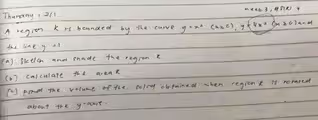 Thursday, 2/1
A region R is bounded by the curve y=x² (x≥0), y=4x² (x≥0) and
the line y=1
(a) Sketch and shade the region R
(b) Calculate the area R
(c) Find the volume of the solid obtained when region R is rotated
about the y-axis.